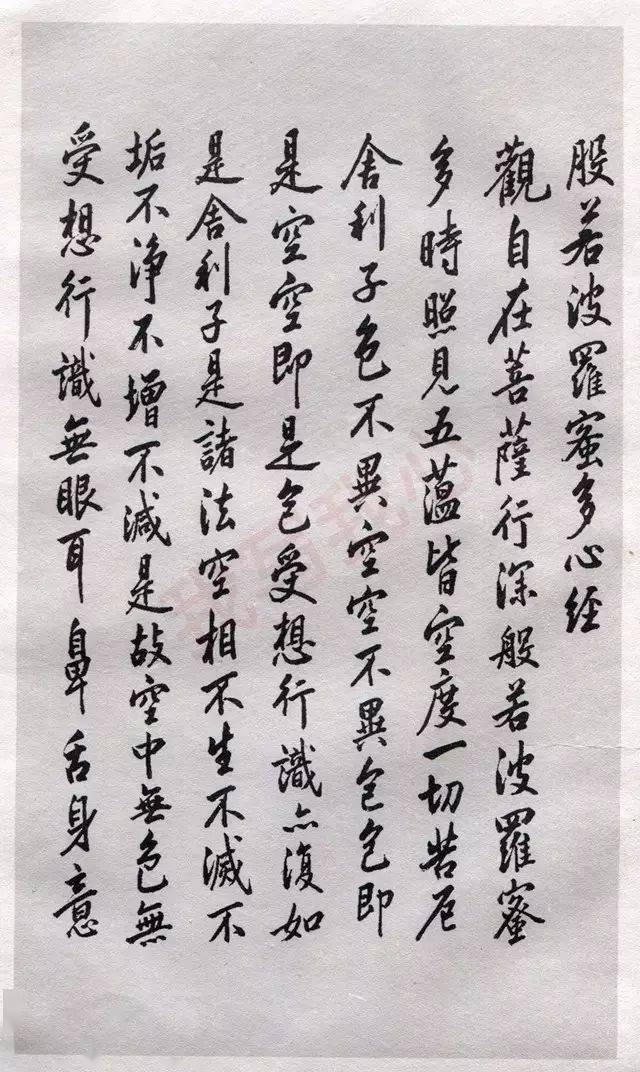 般若波羅蜜多心經
觀自在菩薩行深般若波羅蜜
多時照見五蘊皆空度一切苦厄
舍利子色不異空空不異色色即
是空空即是色受想行識亦復如
是舍利子是諸法空相不生不滅不
垢不淨不增不減是故空中無色無
受想行識無眼耳鼻舌身意
我写我心